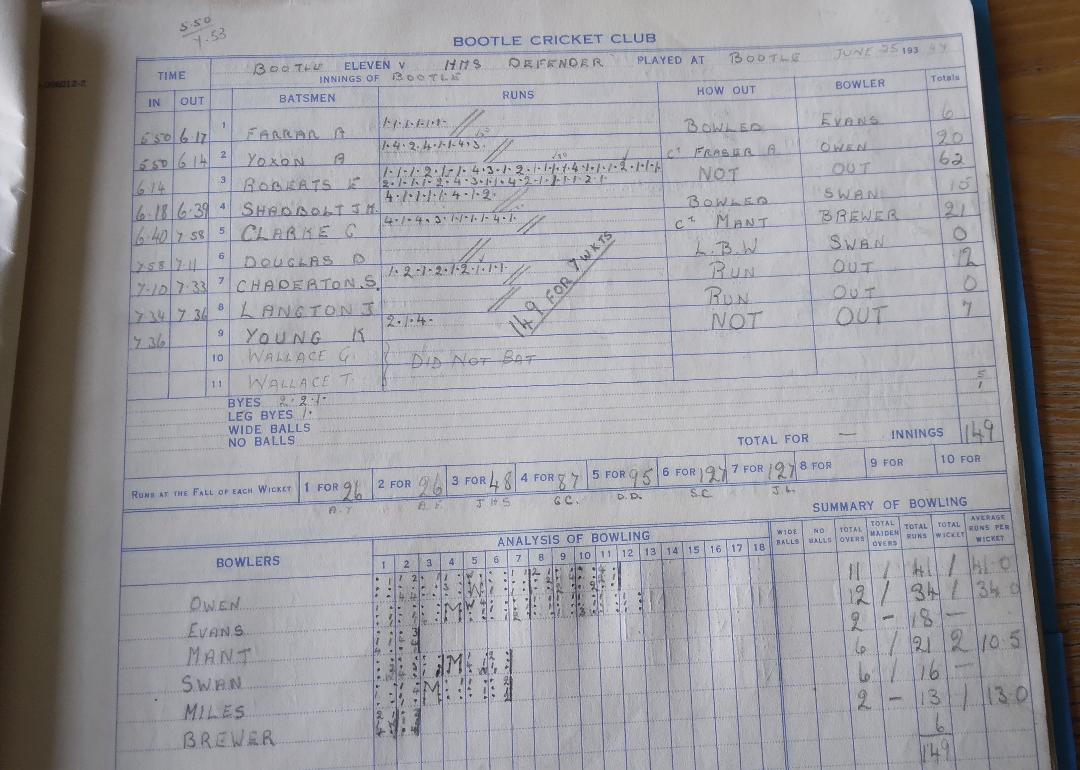 5.50
7.53
BOOTLE CRICKET CLUB
TIME BOOTLE ELEVEN V HMS DEFENDER PLAYED AT BOOTLE JUNE 25 193
INNINGS OF BOOTLE
IN OUT BATSMEN RUNS HOW OUT BOWLER Totals
5.50 6.17 1 FARRAR A 1.1.1.1.1.1. BOWLED EVANS 6
5.50 6.14 2 YOXON A 1.4.2.4.1.1.4.3. CT FRASER A OWEN 20
6.14 3 ROBERTS E NOT OUT 62
6.18 6.39 4 SHADBOLT J.H. 4.1.1.1.1.4.1.2. BOWLED SWAN 15
6.40 7.58 5 CLARKE G 4.1.4.3.1.1.1.1.4.1. CT MANT BREWER 21
7.58 7.11 6 DOUGLAS D L.B.W SWAN 0
7.10 7.33 7 CHADERTON.S. 1.2.1.2.1.2.1.1.1. RUN OUT 12
7.34 7.36 8 LANGTON J RUN OUT 0
7.36 9 YOUNG K 2.1.4. NOT OUT 7
149 FOR 7 WKTS
10 WALLACE G. DID NOT BAT
11 WALLACE T.
BYES 2.2.1. 5
LEG BYES 1. 1
WIDE BALLS
NO BALLS
TOTAL FOR — INNINGS 149
RUNS AT THE FALL OF EACH WICKET 1 FOR 26 2 FOR 26 3 FOR 48 4 FOR 87 5 FOR 95 6 FOR 127 7 FOR 127 8 FOR 9 FOR 10 FOR
A.Y A.F. J.H.S G.C. D.D. S.C. J.L.
SUMMARY OF BOWLING
BOWLERS ANALYSIS OF BOWLING WIDE BALLS NO BALLS TOTAL OVERS TOTAL MAIDEN OVERS TOTAL RUNS TOTAL WICKETS AVERAGE RUNS PER WICKET
1 2 3 4 5 6 7 8 9 10 11 12 13 14 15 16 17 18
OWEN 11 1 41 1 41.0
EVANS 12 1 34 1 34.0
MANT 2 - 18 -
SWAN 6 1 21 2 10.5
MILES 6 1 16 -
BREWER 2 - 13 1 13.0
6
149